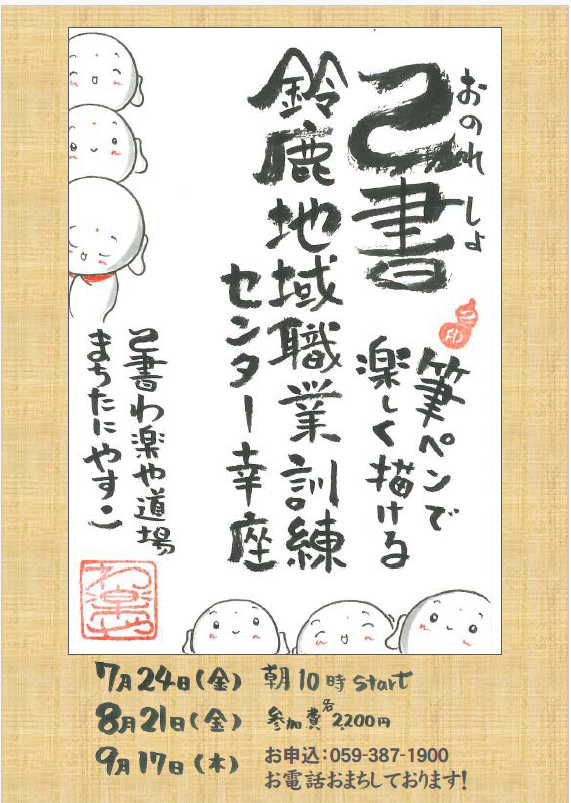 おのれしょ
己書
己印
筆ペンで
楽しく描ける
鈴鹿地域職業訓練
センター幸座
己書わ楽や道場
まちたにやすこ
わ楽や
7月24日(金) 朝10時start
8月21日(金) 参加費各2,200円
9月17日(木) お申込:059-387-1900
お電話おまちしております!